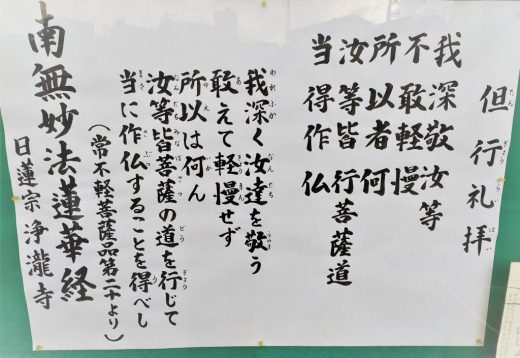 但行礼拝
たんぎょうらいはい
我深敬汝等
不敢軽慢
所以者何
汝等皆行菩薩道
当得作仏
我深く汝達を敬う
敢えて軽慢せず
所以は何ん
汝等皆菩薩の道を行じて
当に作仏することを得べし
(常不軽菩薩品第二十より)
南無妙法蓮華経
日蓮宗 浄瀧寺